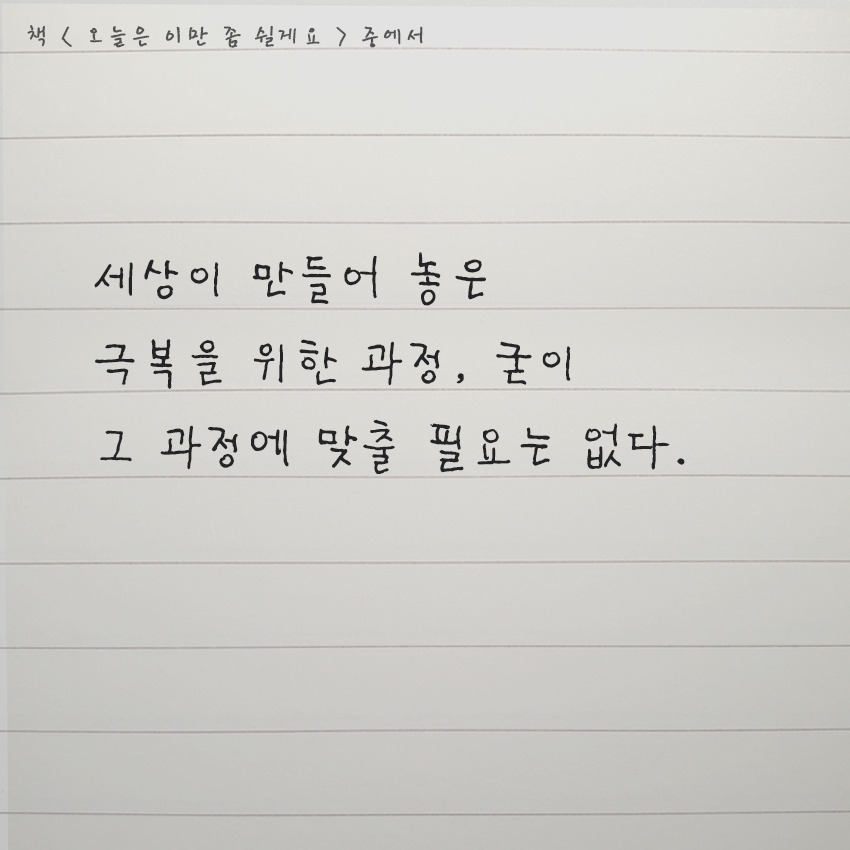 책 < 오늘은 이만 좀 쉴게요 > 중에서
세상이 만들어 놓은
극복을 위한 과정, 굳이
그 과정에 맞출 필요는 없다.